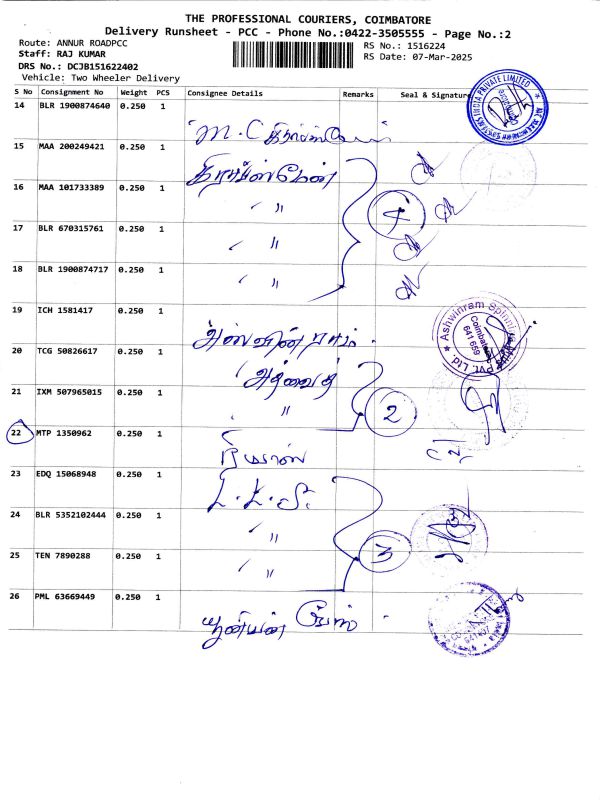 THE PROFESSIONAL COURIERS, COIMBATORE
Delivery Runsheet - PCC - Phone No.:0422-3505555 - Page No.:2
Route: ANNUR ROADPCC
RS No.: 1516224
Staff: RAJ KUMAR
RS Date: 07-Mar-2025
DRS No.: DCJB151622402
Vehicle: Two Wheeler Delivery
S No Consignment No Weight PCS Consignee Details Remarks Seal & Signature
14 BLR 1900874640 0.250 1
15 MAA 200249421 0.250 1
16 MAA 101733389 0.250 1
〃
4
17 BLR 670315761 0.250 1
〃
18 BLR 1900874717 0.250 1
〃
19 ICH 1581417 0.250 1
Ashwinram Spinning
Coimbatore
641 659
Pvt. Ltd.
20 TCG 50826617 0.250 1
அத்வைத்
21 IXM 507965015 0.250 1
〃
2
22 MTP 1350962 0.250 1
23 EDQ 15068948 0.250 1
L.L.S.
24 BLR 5352102444 0.250 1
〃
25 TEN 7890288 0.250 1
〃
3
26 PML 63669449 0.250 1